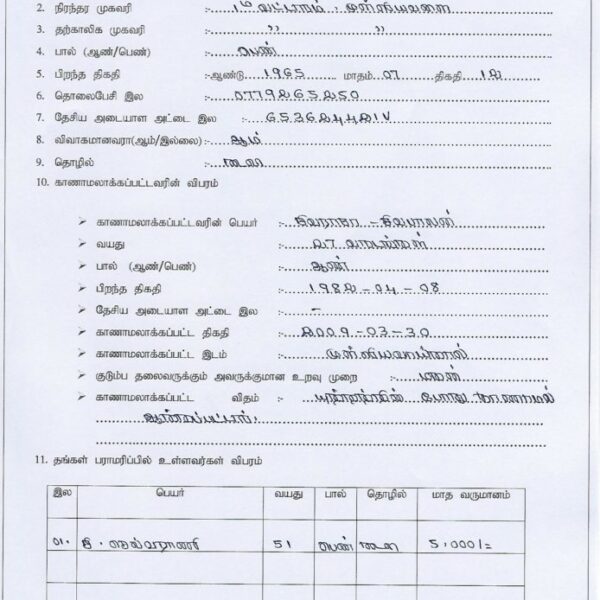 2. நிரந்தர முகவரி :- 1ம் வட்டாரம், முள்ளியவளை
3. தற்காலிக முகவரி :- ,, ,,
4. பால் (ஆண்/பெண்) :- பெண்
5. பிறந்த திகதி :-ஆண்டு 1965 மாதம் 07 திகதி 12
6. தொலைபேசி இல :- 0779265250
7. தேசிய அடையாள அட்டை இல :- 653624421V
8. விவாகமானவரா(ஆம்/இல்லை) :- ஆம்
9. தொழில் :- கூலி
10. காணாமலாக்கப்பட்டவரின் விபரம்
➢ காணாமலாக்கப்பட்டவரின் பெயர் :-
➢ வயது :- 27
➢ பால் (ஆண்/பெண்) :- ஆண்
➢ பிறந்த திகதி :- 1982-04-08
➢ தேசிய அடையாள அட்டை இல :- -
➢ காணாமலாக்கப்பட்ட திகதி :- 2009-03-30
➢ காணாமலாக்கப்பட்ட இடம் :- முள்ளிவாய்க்கால்
➢ குடும்ப தலைவருக்கும் அவருக்குமான உறவு முறை :- மகன்
➢ காணாமலாக்கப்பட்ட விதம் :- போது காணாமல்
ஆக்கப்பட்டார்.
11. தங்கள் பராமரிப்பில் உள்ளவர்கள் விபரம்
இல பெயர் வயது பால் தொழில் மாத வருமானம்
01. செல்வராணி 51 பெண் கூலி 5,000/=